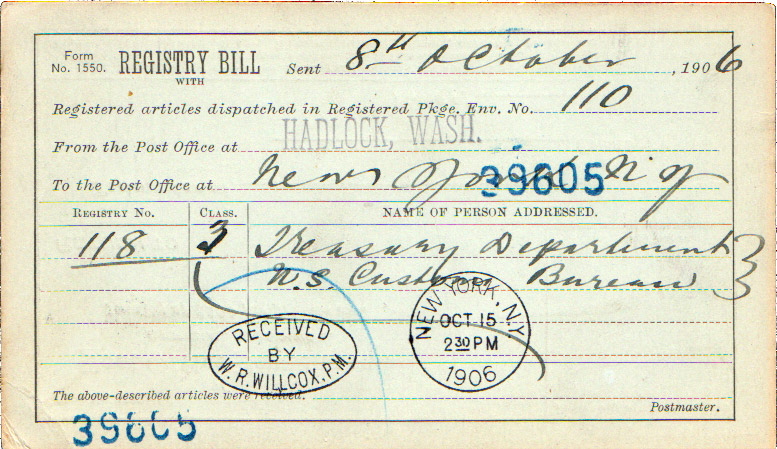 Form
No. 1550. REGISTRY BILL WITH Sent 8th October, 1906
Registered articles dispatched in Registered Pkge. Env. No. 110
From the Post Office at HADLOCK, WASH.
To the Post Office at New York N Y
39605
REGISTRY No. CLASS. NAME OF PERSON ADDRESSED.
118 3 Treasury Department
U.S. Customs Bureau
RECEIVED
BY
W.R.WILLCOX, P.M.
NEW YORK, N.Y.
OCT 15
2 30 PM
1906
The above-described articles were received.
Postmaster.
39605